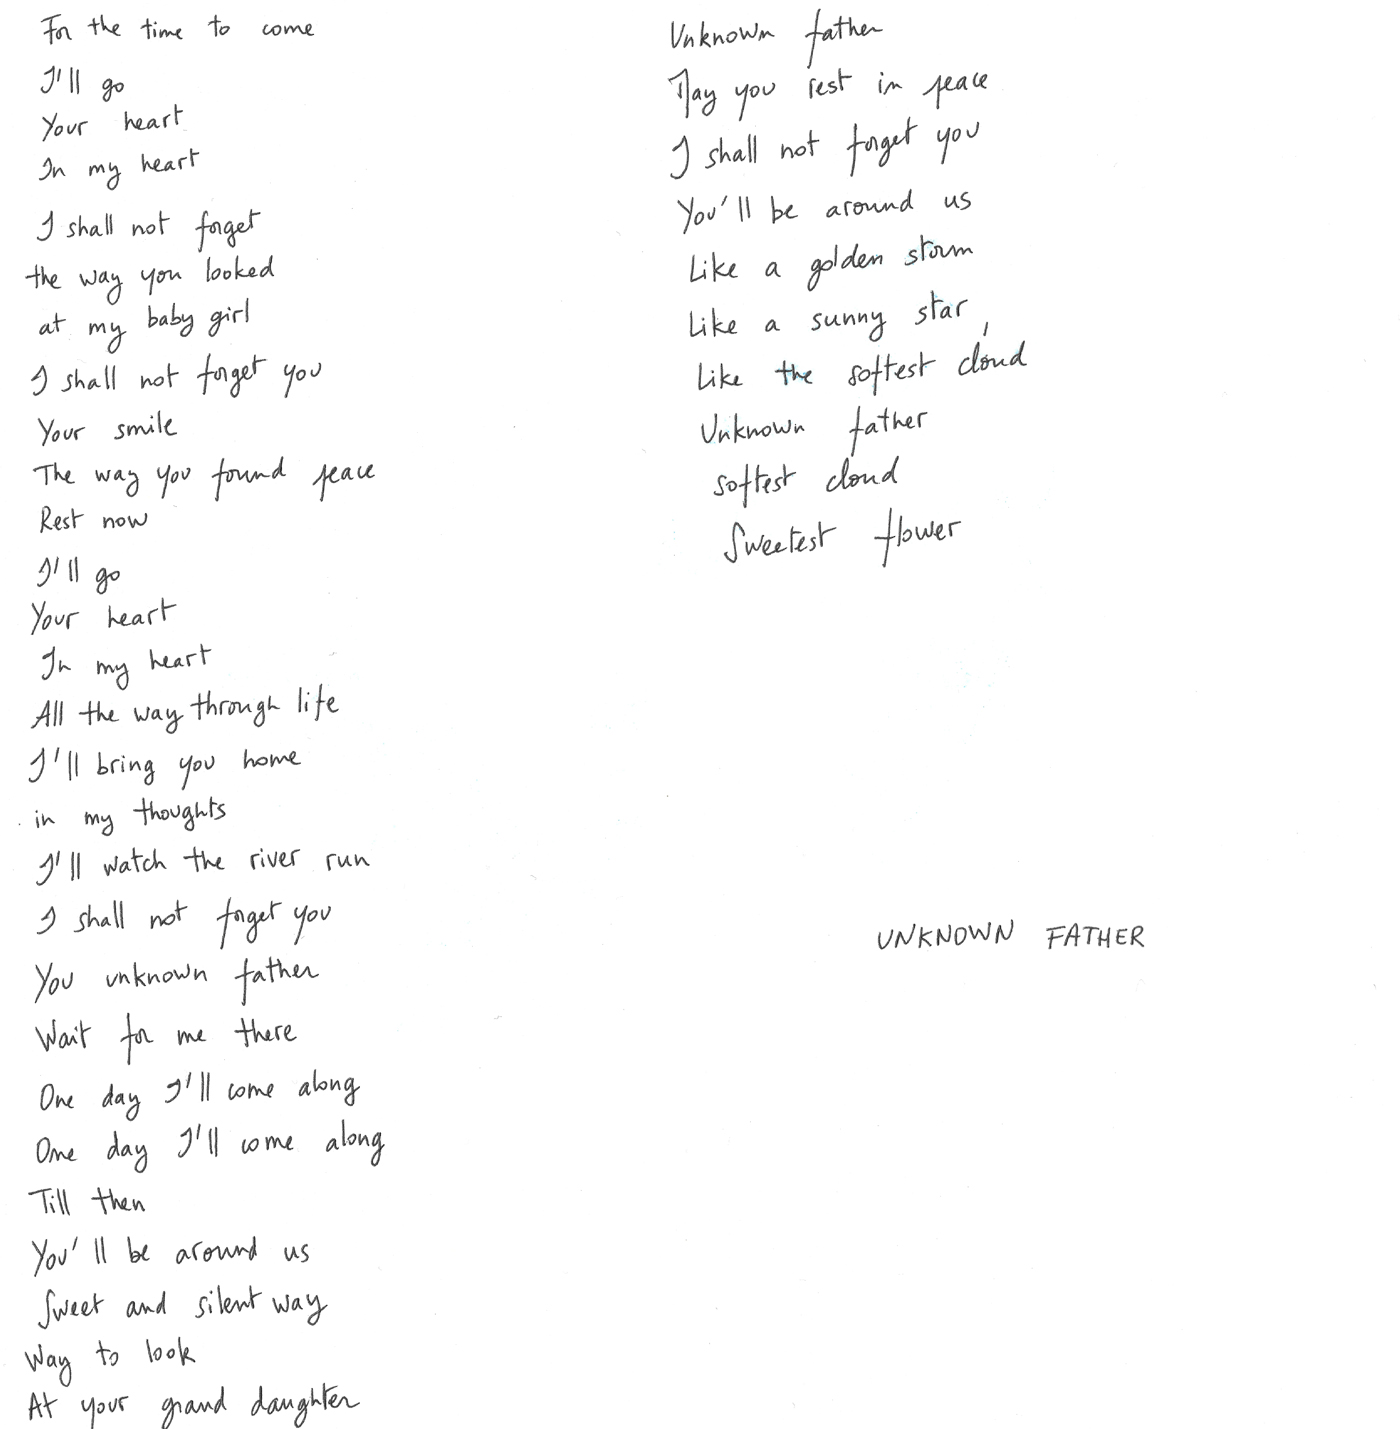 For the time to come
I'll go
Your heart
In my heart
I shall not forget
the way you looked
at my baby girl
I shall not forget you
Your smile
The way you found peace
Rest now
I'll go
Your heart
In my heart
All the way through life
I'll bring you home
in my thoughts
I'll watch the river run
I shall not forget you
You unknown father
Wait for me there
One day I'll come along
One day I'll come along
Till then
You'll be around us
Sweet and silent way
Way to look
At your grand daughter
Unknown father
May you rest in peace
I shall not forget you
You'll be around us
Like a golden storm
Like a sunny star,
Like the softest cloud
Unknown father
softest cloud
Sweetest flower
UNKNOWN FATHER